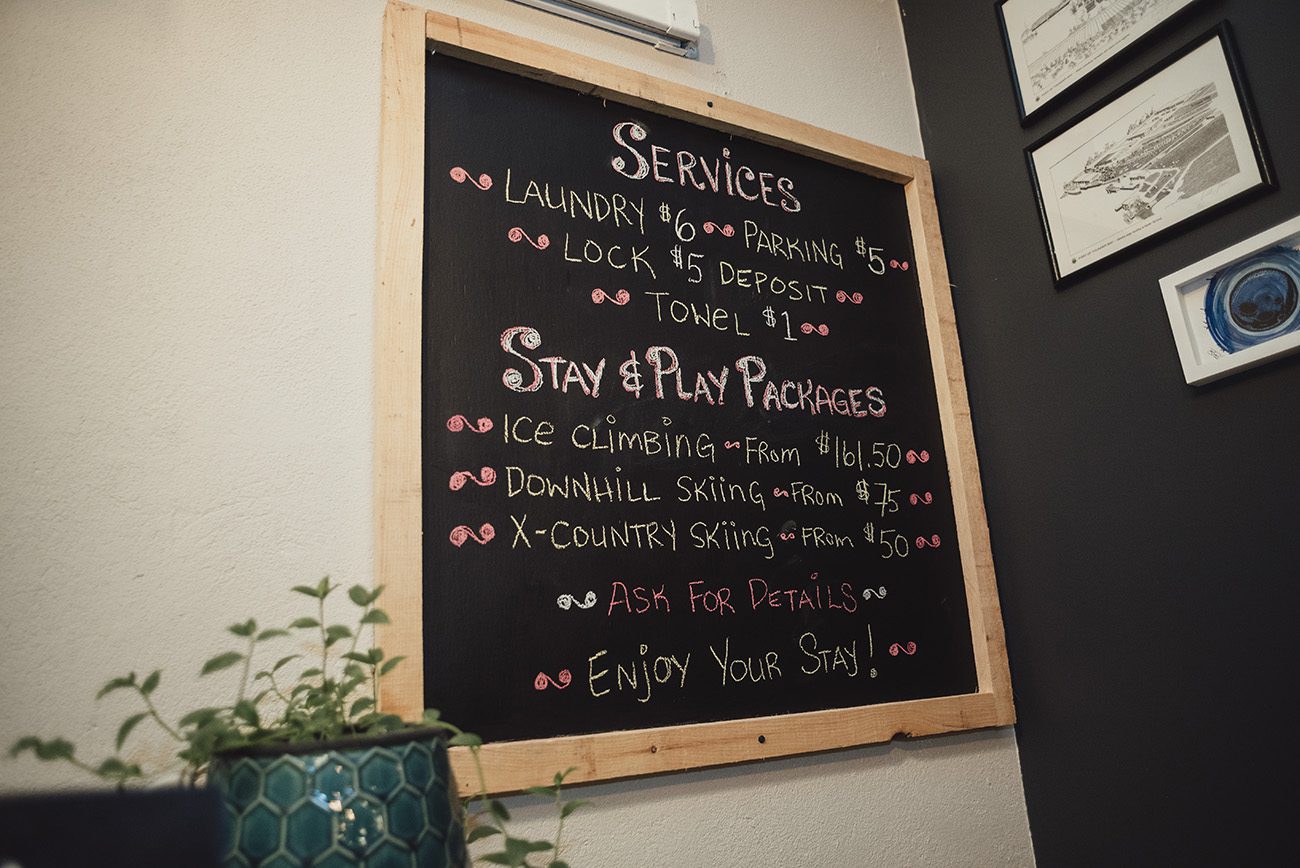 Services
Laundry $6 Parking $5
Lock $5 Deposit
Towel $1
Stay & Play Packages
Ice climbing ~ From $161.50
Downhill skiing ~ From $75
X-Country skiing ~ From $50
Ask For Details
Enjoy Your Stay!